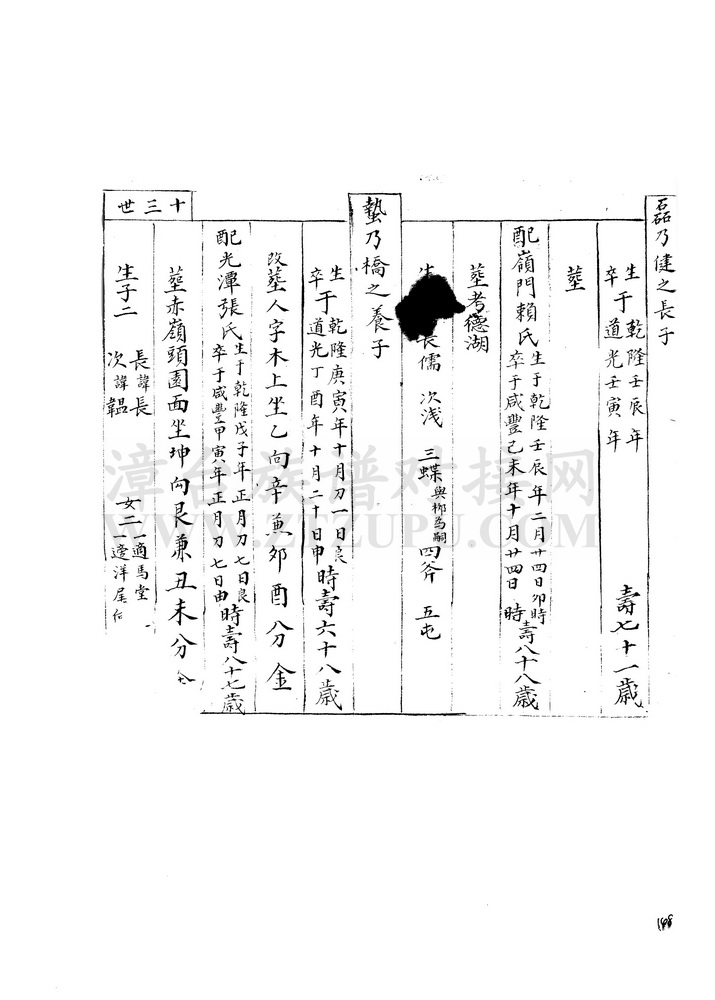 磊乃健之長子
生于乾隆壬辰年
卒于道光壬寅年 壽七十一歲
塟
配嶺門賴氏 生于乾隆壬辰年二月廿四日卯時
卒于咸豐己未年十月廿四日 時 壽八十八歲
塟考德湖
生 長儒 次浅 三蝶 與柳為嗣 四斧 五屯
蟄乃橋之養子
生于乾隆庚寅年十月刀一日良
卒于道光丁酉年十月二十日申 時壽六十八歲
改塟人字木上坐乙向辛兼卯酉分金
配光潭張氏 生于乾隆戊子年正月刀七日良
卒于咸豐甲寅年正月刀七日由 時壽八十七歲
塟赤嶺頭園面坐坤向艮兼丑未分
生子二 長諱長
次諱韞 女二 一適馬堂
一適洋尾
十三世
漳台族谱对接网
WWW.ZTZUPU.COM
148